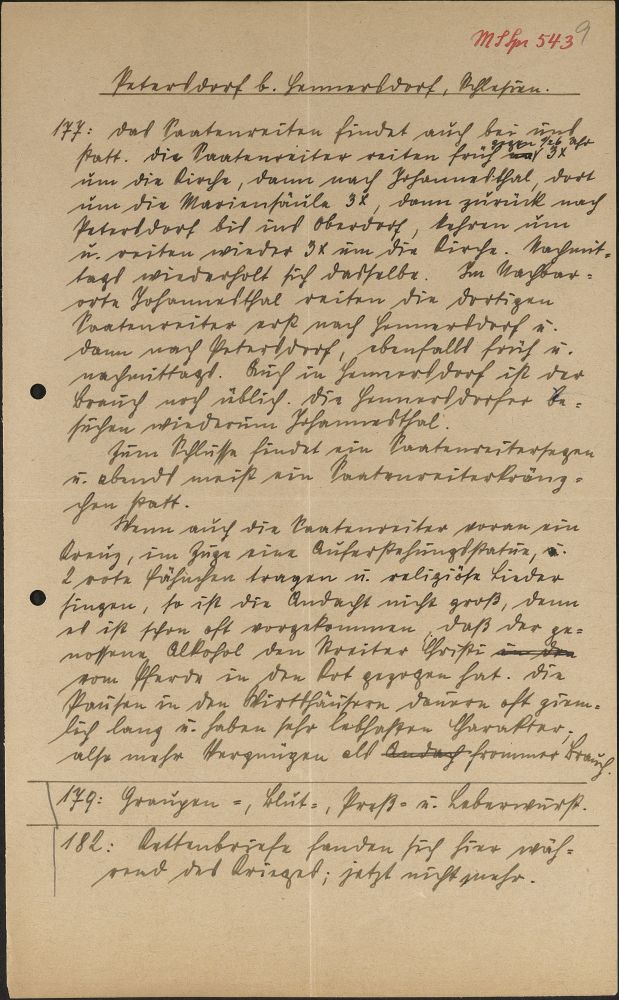 MS Spr 543 9
Petersdorf b. Hennersdorf, Schlesien.
177: Das Saatenreiten findet auch bei uns
gegen 1/2 6 Uhr
statt. Die Saatenreiter reiten früh 3x
um die Kirche, dann nach Johannesthal, dort
um die Mariensäule 3x, dann zurück nach
Petersdorf bis ins Oberdorf, kehren um
u. reiten wieder 3x um die Kirche. Nachmit-
tags wiederholt sich dasselbe. Im Nachbar-
orte Johannesthal reiten die dortigen
Saatenreiter erst nach Hennersdorf u.
dann nach Petersdorf, ebenfalls früh u.
nachmittags. Auch in Hennersdorf ist der
Brauch noch üblich. Die Hennersdorfer be-
suchen wiederum Johannesthal.
Zum Schlusse findet ein Saatenreitersegen
u. abends meist ein Saatenreiterkränz-
chen statt.
Wenn auch die Saatenreiter voran ein
Kreuz, im Zuge eine Auferstehungsstatue, u.
2 rote Fähnchen tragen u. religiöse Lieder
singen, so ist die Andacht nicht groß, denn
es ist schon oft vorgekommen, daß der ge-
nossene Alkohol den Streiter Christi in den
vom Pferde in den Kot gezogen hat. Die
Pausen in den Wirtshäusern dauern oft ziem-
lich lang u. haben sehr lebhaften Charakter,
also mehr Vergnügen als Andach frommer Brauch.
179: Graupen-, Blut-, Preß- u. Leberwurst.
182: Kettenbriefe fanden sich hier wäh-
rend des Krieges; jetzt nicht mehr.